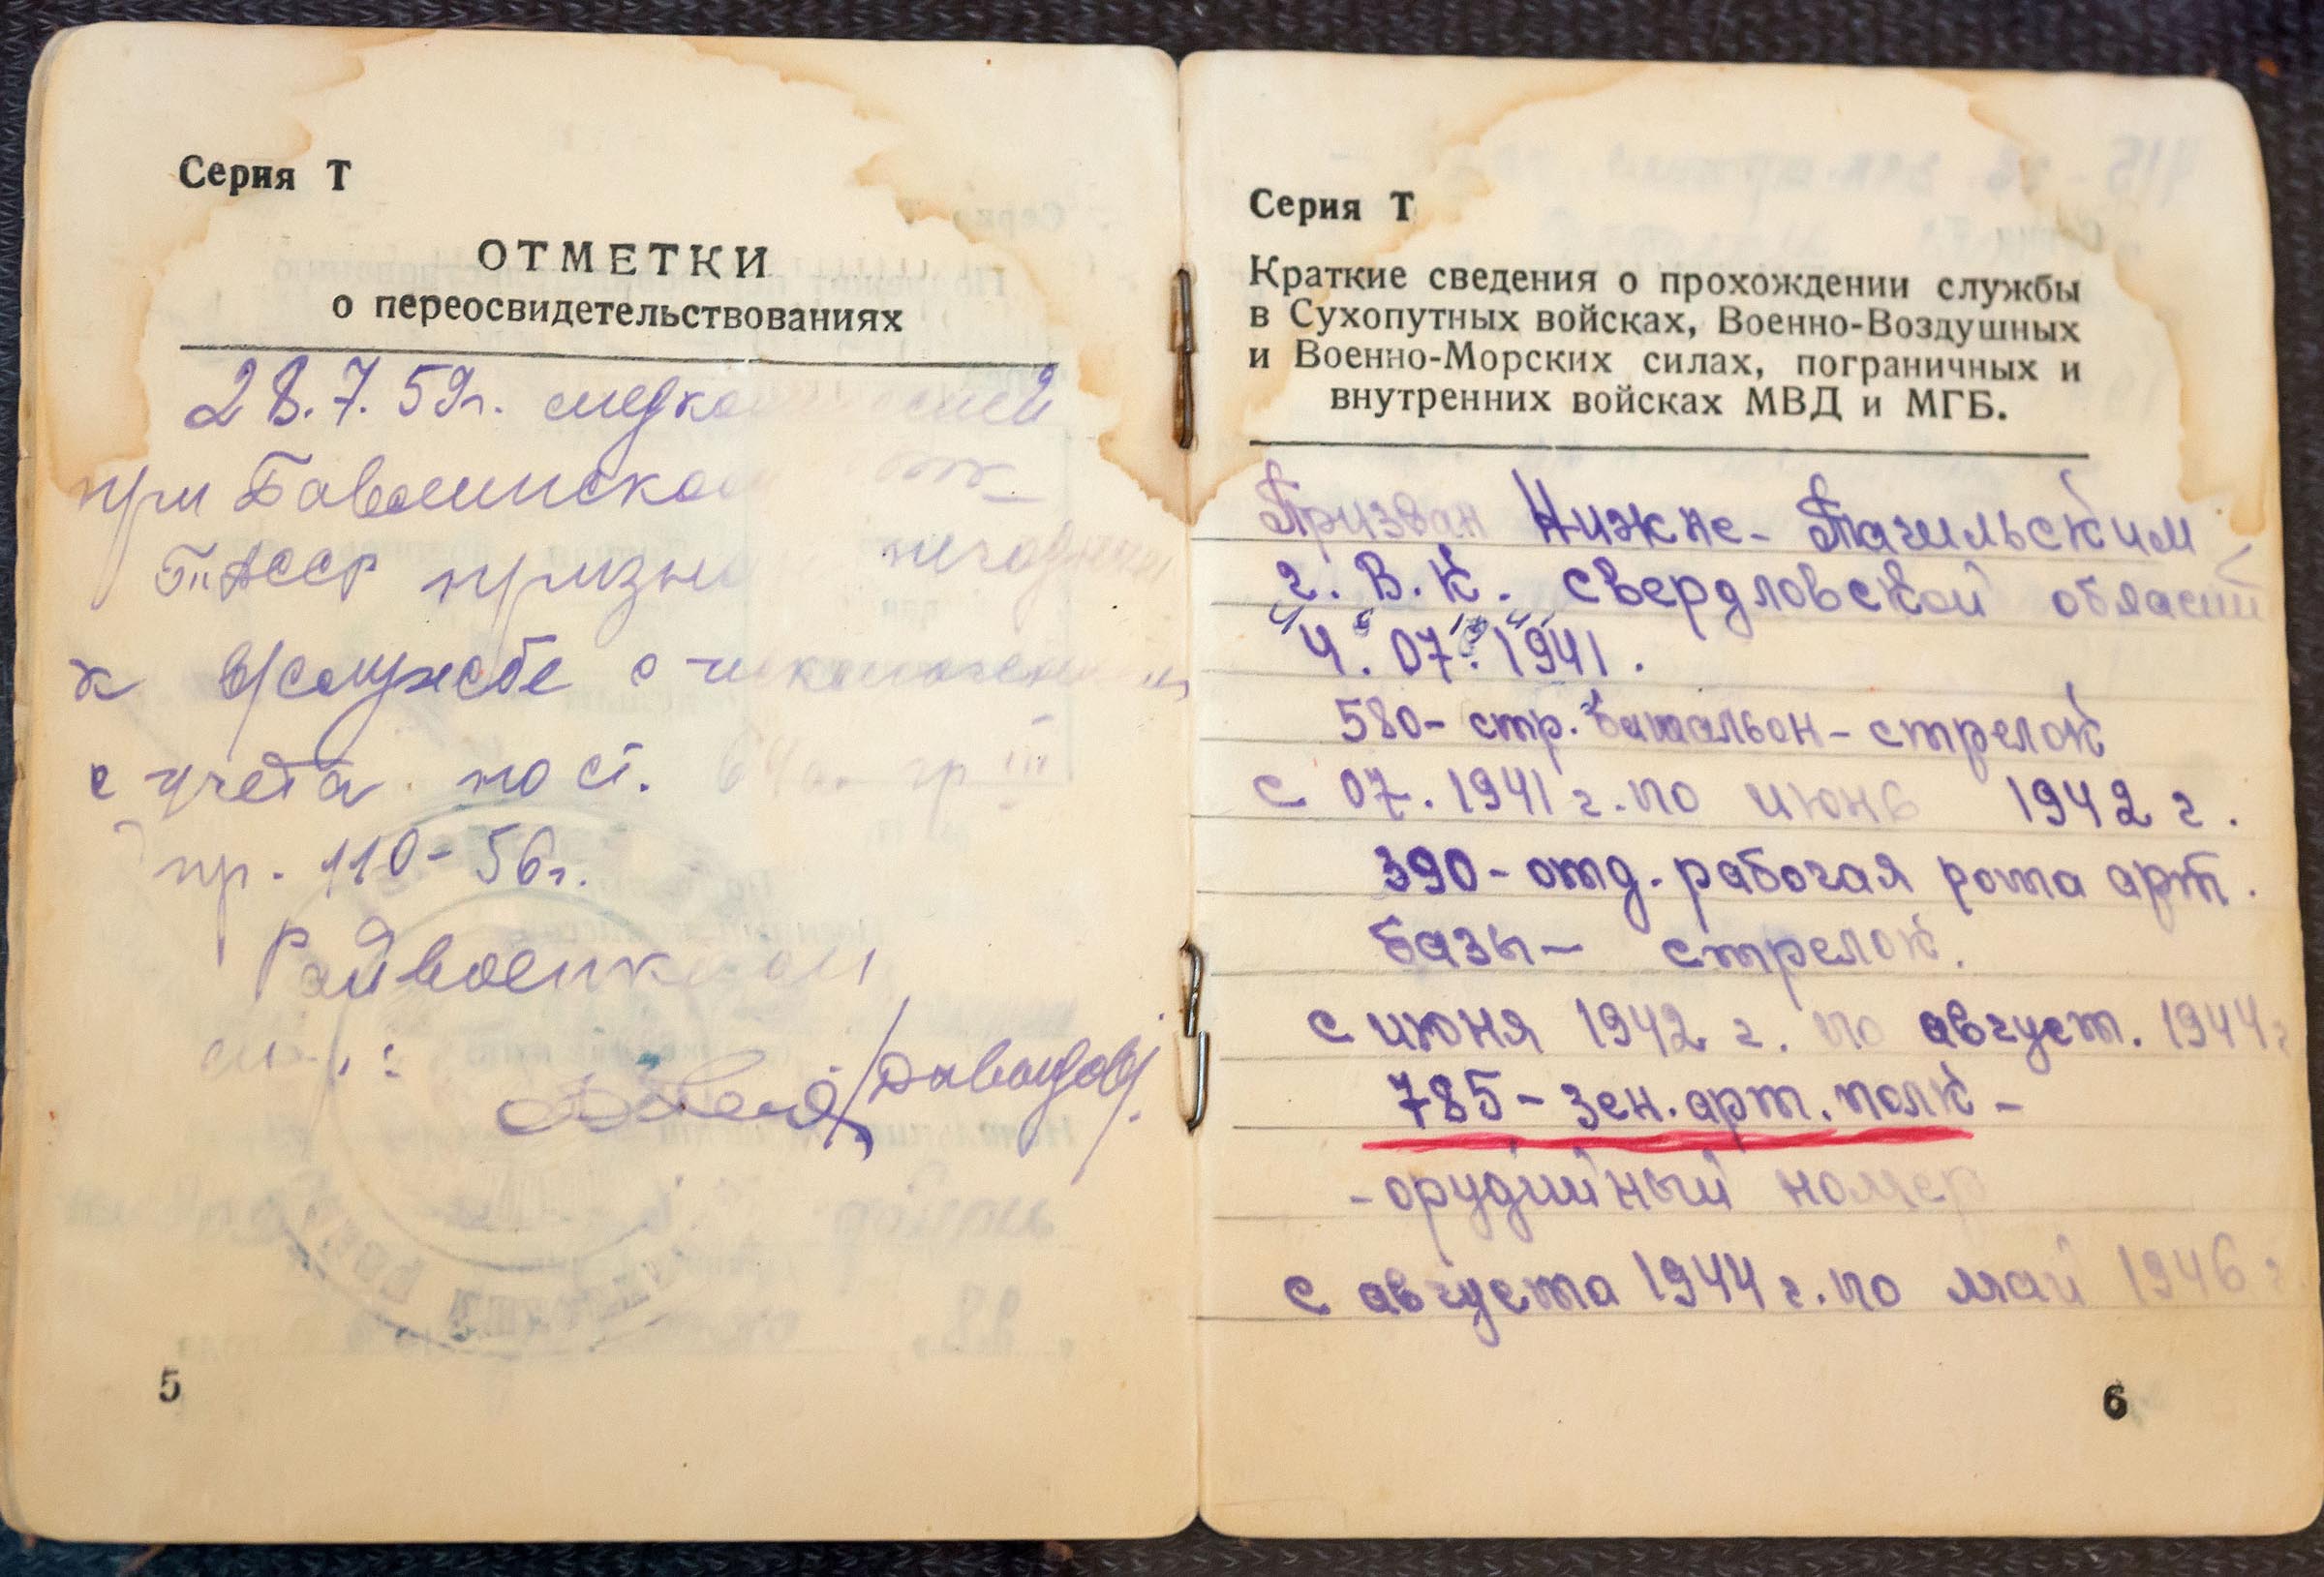 Серия Т
ОТМЕТКИ
о переосвидетельствованиях
28.7.59г.
при Бавлинском
ТАССР негодным
к в/службе с
с учета по ст. гр III
пр. 110-56г.
Райвоенком
/Давыдов/
5
Серия Т
Краткие сведения о прохождении службы
в Сухопутных войсках, Военно-Воздушных
и Военно-Морских силах, пограничных и
внутренних войсках МВД и МГБ.
Призван Нижне-Тагильским
г. В. К. Свердловской области
4. 07. 1941.
580- стр. батальон - стрелок
с 07. 1941 г. по июнь 1942 г.
390- отд. рабочая рота арт.
базы - стрелок.
с июня 1942 г. по август. 1944 г
785 - зен. арт. полк -
- орудийный номер
с августа 1944 г. по май 1946 г
6